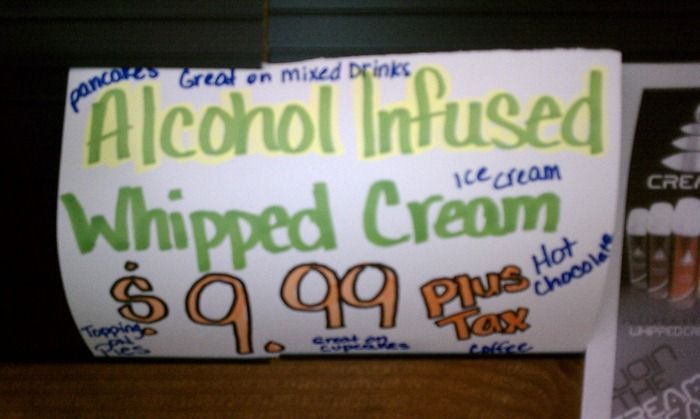 pancakes
Great on mixed Drinks
Alcohol Infused
ice cream
Whipped Cream
Hot
chocolate
$9.99 Plus
Tax
Topping
on
Pies
Great on
cupcakes
coffee
CREA
WHIPPED CRE
JOIN
THE
REAM